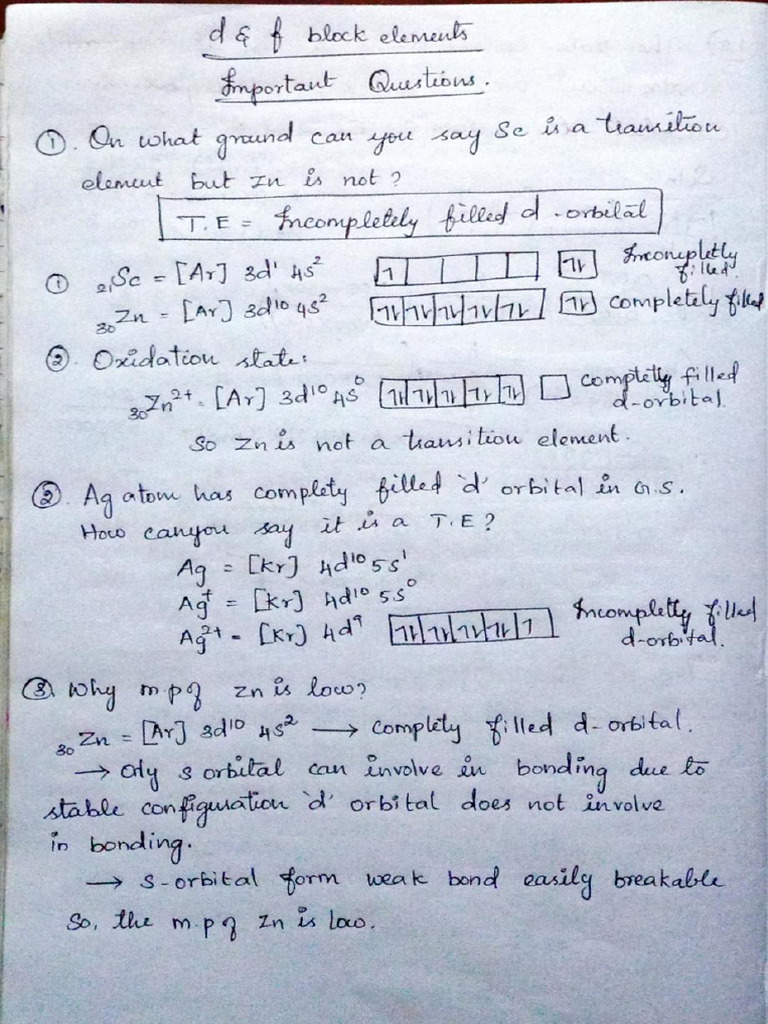 d & f block elements
Important Questions.
①. On what ground can you say Sc is a transition
element but Zn is not?
T.E = Incompletely filled d-orbital
① ₂₁Sc = [Ar] 3d¹ 4s² 1 1↿ Incompletly filled.
₃₀Zn = [Ar] 3d¹⁰ 4s² 1↿ 1↿ 1↿ 1↿ 1↿ 1↿ completely filled
②. Oxidation state:
₃₀Zn²⁺ = [Ar] 3d¹⁰ 4s⁰ 1↿ 1↿ 1↿ 1↿ 1↿ completly filled d-orbital
So Zn is not a transition element.
②. Ag atom has complety filled 'd' orbital in G.S.
How can you say it is a T.E?
Ag = [Kr] 4d¹⁰ 5s¹
Ag⁺ = [Kr] 4d¹⁰ 5s⁰
Ag²⁺ = [Kr] 4d⁹ 1↿ 1↿ 1↿ 1↿ 1 Incompletly filled d-orbital.
③. Why m.p of Zn is low?
₃₀Zn = [Ar] 3d¹⁰ 4s² → complety filled d-orbital.
→ Only s orbital can involve in bonding due to
stable configuration 'd' orbital does not involve
in bonding.
→ s-orbital form weak bond easily breakable
So, the m.p of Zn is low.